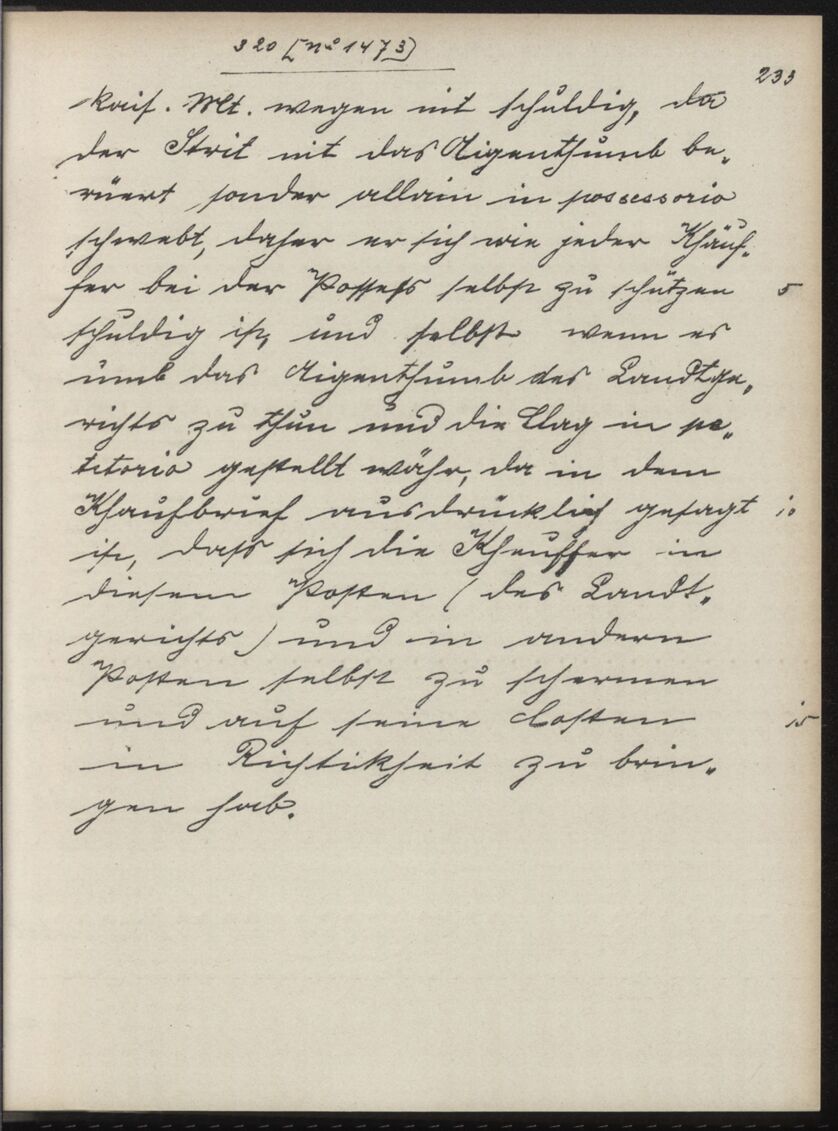 320 [No 1473]
233
kais. Mt. wegen nit schuldig, da
der Strit nit das Aigenthumb be„
rüert sonder allain in possessorio
schwebt, daher er sich wie jeder Khäuf„
fer bei der Possess selbst zu schützen 5
schuldig ist, und selbst wenn es
umb das Aigenthumb des Landtge„
richts zu thun und die Clag in pe„
titorio gestellt währ, da in dem
Khaufbrief ausdrücklich gesagt 10
ist, dass sich die Kheuffer in
diesem Posten (des Landt„
gerichts) und in andern
Posten selbst zu schermen
und auf seine Costen 15
in Richtikheit zu brin„
gen hab.